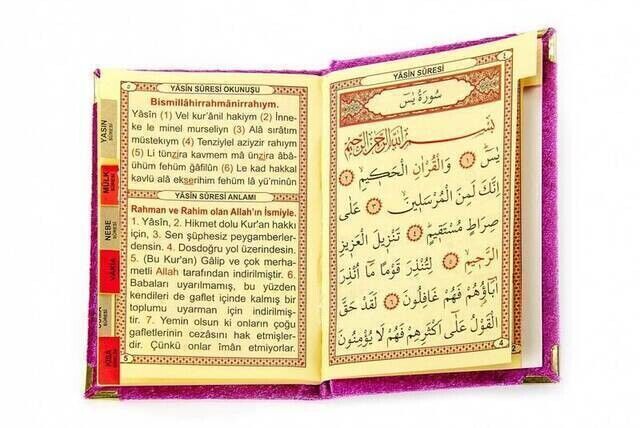 YÂSÎN SÛRESİ OKUNUŞU
Bismillâhirrahmânirrahym.
Yâsîn (1) Vel kur'ânil hakiym (2) İnne-
ke le minel murseliyn (3) Alâ sırâtım
müstekıym (4) Tenziylel aziyzir rahıym
(5) Li tünzira kavmem mâ ünzira âbâ-
ühüm fehüm ğâfilûn (6) Le kad hakkal
kavlü alâ ekserihim fehüm lâ yü'minûn
YÂSÎN SÛRESİ ANLAMI
Rahman ve Rahim olan Allah'ın İsmiyle.
1. Yâsîn, 2. Hikmet dolu Kur'an hakkı
için, 3. Sen şüphesiz peygamberler-
densin. 4. Dosdoğru yol üzerindesin.
5. (Bu Kur'an) Gâlip ve çok merha-
metli Allah tarafından indirilmiştir. 6.
Babaları uyarılmamış, bu yüzden
kendileri de gaflet içinde kalmış bir
toplumu uyarman için indirilmiş-
tir. 7. Yemin olsun ki onların çoğu
gafletlerinin cezasını hak etmişler-
dir. Çünkü onlar îmân etmiyorlar.
5
YASİN
SÛRESİ
MÜLK
SÛRESİ
NEBE
SÛRESİ
KISA
YÂSÎN SÛRESİ
سُورَةُ يٰسٓ
بِسْمِ اللّٰهِ الرَّحْمٰنِ الرَّحِيمِ
يٰسٓ ﴿١﴾ وَالْقُرْاٰنِ الْحَكِيمِ ﴿٢﴾
اِنَّكَ لَمِنَ الْمُرْسَلِينَ ﴿٣﴾ عَلٰى
صِرَاطٍ مُسْتَقِيمٍ ﴿٤﴾ تَنْزِيلَ الْعَزِيزِ
الرَّحِيمِ ﴿٥﴾ لِتُنْذِرَ قَوْمًا مَٓا اُنْذِرَ
اٰبَٓاؤُ۬هُمْ فَهُمْ غَافِلُونَ ﴿٦﴾ لَقَدْ حَقَّ
الْقَوْلُ عَلٰٓى اَكْثَرِهِمْ فَهُمْ لَا يُؤْمِنُونَ
4
2